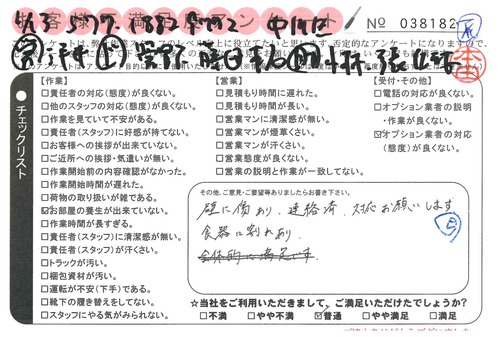 No 038182
【作業】
□責任者の対応(態度)が良くない。
□他のスタッフの対応(態度)が良くない。
□作業を見ていて不安がある。
□責任者(スタッフ)に好感が持てない。
□お客様への挨拶が出来ていない。
□ご近所への挨拶・気遣いが無い。
□作業開始前の内容確認がなかった。
□作業開始時間が遅れた。
□荷物の取り扱いが雑である。
☑お部屋の養生が出来ていない。
□作業時間が長すぎる。
□責任者(スタッフ)に清潔感が無い。
□責任者(スタッフ)が汗くさい。
□トラックが汚い。
□梱包資材が汚い。
□運転が不安(下手)である。
□靴下の履き替えをしてない。
□スタッフにやる気がみられない。
【営業】
□見積もり時間に遅れた。
□見積もり時間が長い。
□営業マンに清潔感が無い。
□営業マンが煙草くさい。
□営業マンが汗くさい。
□営業態度が良くない。
□営業の説明と作業が一致してない。
【受付・その他】
□電話の対応が良くない。
□オプション業者の説明
・作業が良くない。
☑オプション業者の対応
(態度)が良くない。
チェックリスト
その他、ご意見・ご要望等ありましたらお書き下さい。
壁に傷あり、連絡済、対応お願いします
食器に割れあり、
全体的に満足です
☆当社をご利用いただきまして、ご満足いただけたでしょうか?
□不満 □やや不満 ☑普通 □やや満足 □満足